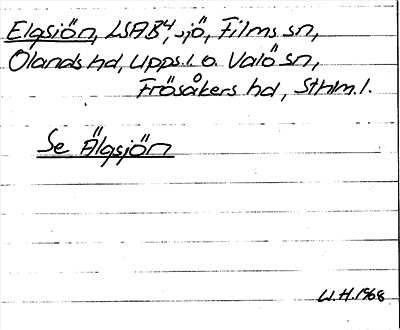 Elgsjön, LSAB4, sjö, Films sn,
Olands hd, Upps.l. o. Valö sn,
Frösåkers hd, Sthlm.l.
Se Älgsjön
W.H. 1968